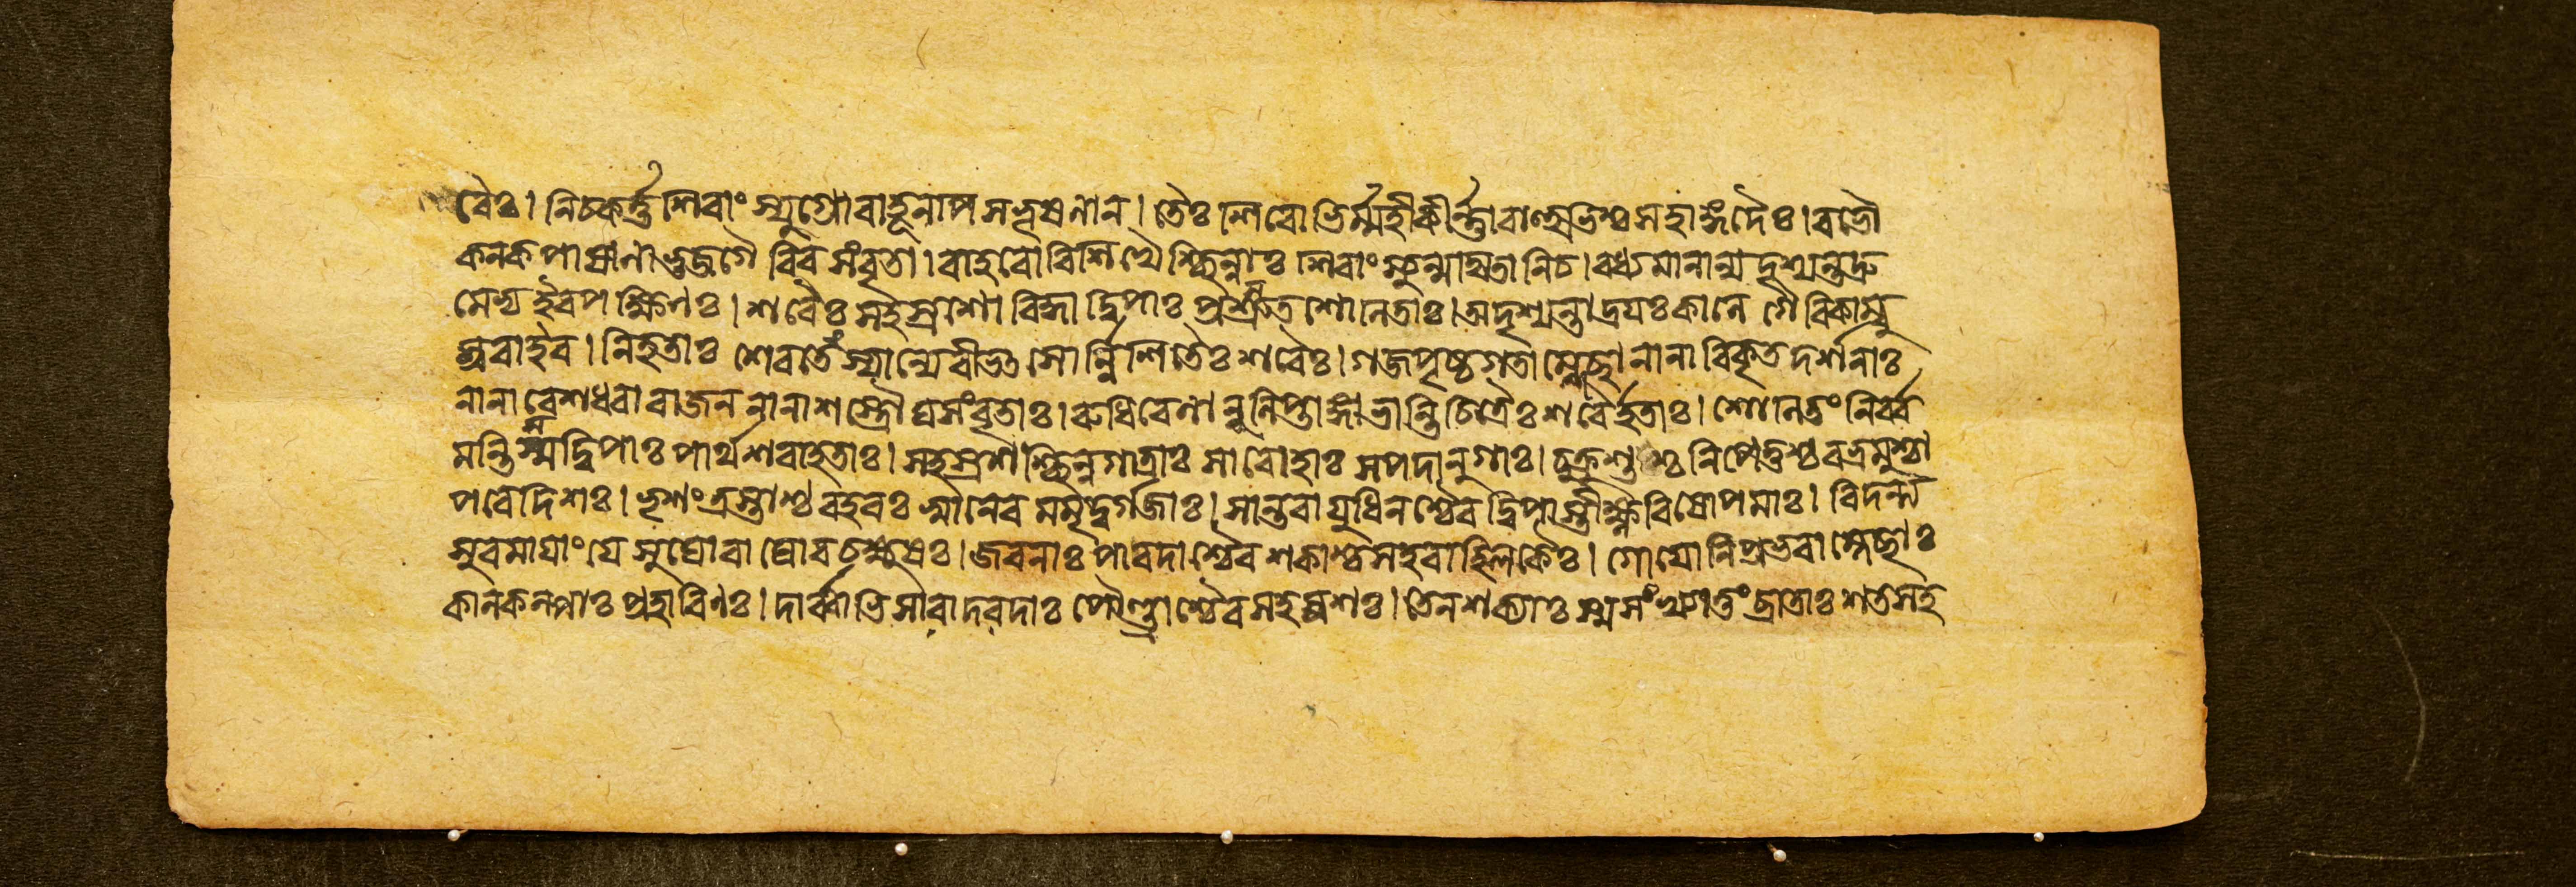 রৈঃ। নিচকর্ত্ত শিরাংস্যুগ্রো বাহূনপি সুভূষণান। তৈঃ শিরোভির্ম্মহীকীর্ণ্ণা বাহুভিশ্চ সহাঙ্গদৈঃ। বভৌ
কনকপাষাণা ভুজগৈ রিব সংবৃতা। বাহবো বিশিখৈ শ্ছিন্নাঃ শিরাংস্যুন্মথিতানিচ। চ্যবমানান্যদৃশ্যন্ত দ্রু
মেভ্য ইব পক্ষিণঃ। শরৈঃ সহস্রশো বিদ্ধা দ্বিপাঃ প্রস্রুত শোণিতাঃ। অদৃশ্যন্তাদ্রয়ঃ কালে গৈরিকাম্বু
স্রবা ইব। নিহতাঃ শেরতে স্মান্যে বীভৎসোর্ন্নিশিতৈঃ শরৈঃ। গজপৃষ্ঠগতা ম্লেচ্ছা নানা বিকৃত দর্শনাঃ
নানা বেশধরা রাজন নানাশস্ত্রৌঘসংবৃতাঃ। রুধিরেণানুলিপ্তাঙ্গা ভান্তি চিত্রৈঃ শরৈর্হতাঃ। শোণিতং নির্ব্ব
মন্তি স্ম দ্বিপাঃ পার্থশরাহতাঃ। সহস্রশ শ্ছিন্নগাত্রাঃ সারোহাঃ সপদানুগাঃ। চুক্রুশুশ্চ নিপেতুশ্চ বভ্রমুশ্চা
পরে দিশঃ। ভৃশং ত্রস্তাশ্চ বহবঃ স্বানেব মমৃদুর্গজাঃ। সান্তরা যুধিনশ্চৈব দ্বিপাস্তীক্ষ্ণবিষোপমাঃ। বিদন্ত্য
সুরমায়াং যে সুঘোরা ঘোরচক্ষুষঃ। জবনাঃ পারদাশ্চৈব শকাশ্চ সহবাহ্লিকৈঃ। গোযোনিপ্রভবা ম্লেচ্ছাঃ
কালকল্পাঃ প্রহারিণঃ। দার্ব্বাভিসারা দরদাঃ পৌণ্ড্রাশ্চৈব সহস্রশঃ। তেন শক্যাঃ স্ম সংখ্যাতুং ব্রাতাঃ শতসহ